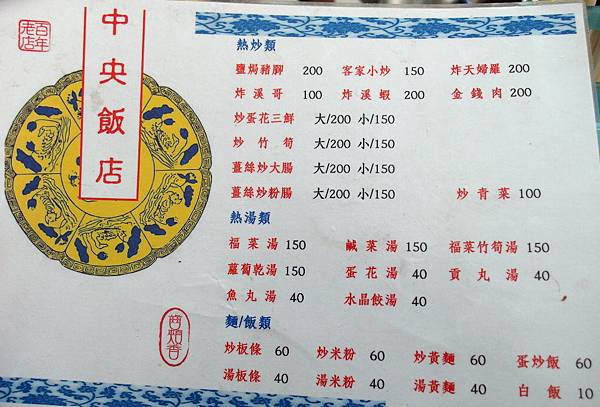 百年老店
中央飯店
熱炒類
鹽焗豬腳 200 客家小炒 150 炸天婦羅 200
炸溪哥 100 炸溪蝦 200 金錢肉 200
炒蛋花三鮮 大/200 小/150
炒竹筍 大/200 小/150
薑絲炒大腸 大/200 小/150
薑絲炒粉腸 大/200 小/150 炒青菜 100
熱湯類
福菜湯 150 鹹菜湯 150 福菜竹筍湯 150
蘿蔔乾湯 150 蛋花湯 40 貢丸湯 40
魚丸湯 40 水晶餃湯 40
麵/飯類
炒板條 60 炒米粉 60 炒黃麵 60 蛋炒飯 60
湯板條 40 湯米粉 40 湯黃麵 40 白飯 10